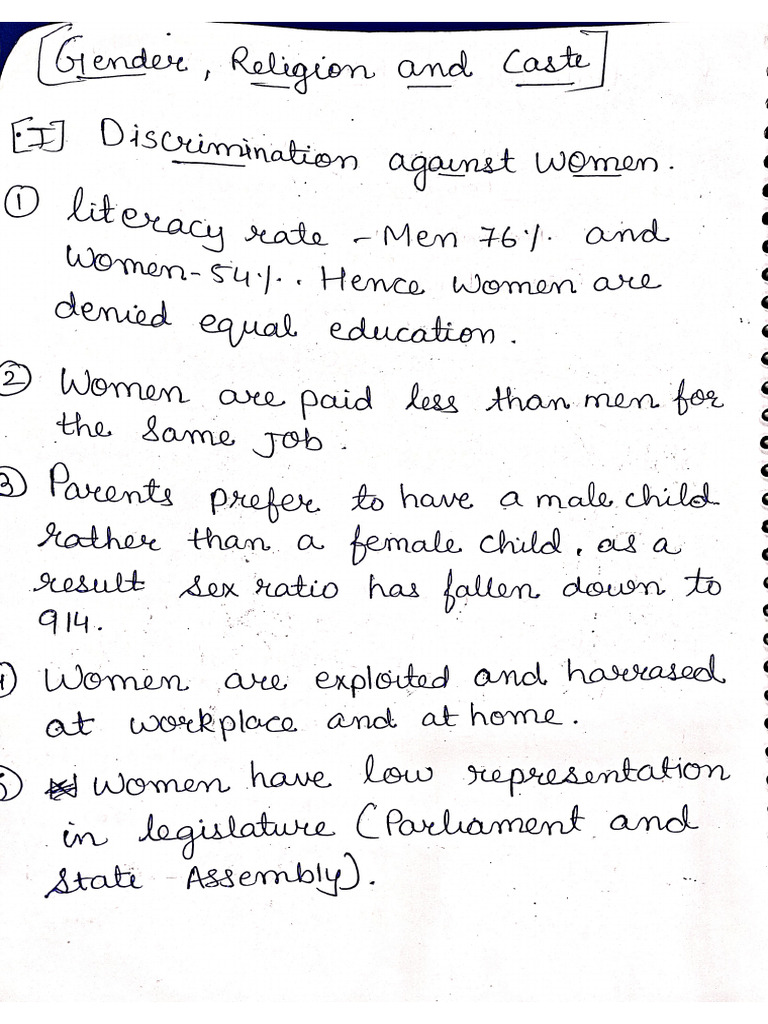 [Gender, Religion and Caste]
[I] Discrimination against women.
① literacy rate - Men 76%. and
Women-54%. Hence women are
denied equal education.
② Women are paid less than men for
the same job.
3 Parents prefer to have a male child
rather than a female child, as a
result sex ratio has fallen down to
914.
4 Women are exploited and harrased
at workplace and at home.
5 Women have low representation
in legislature (Parliament and
State Assembly).